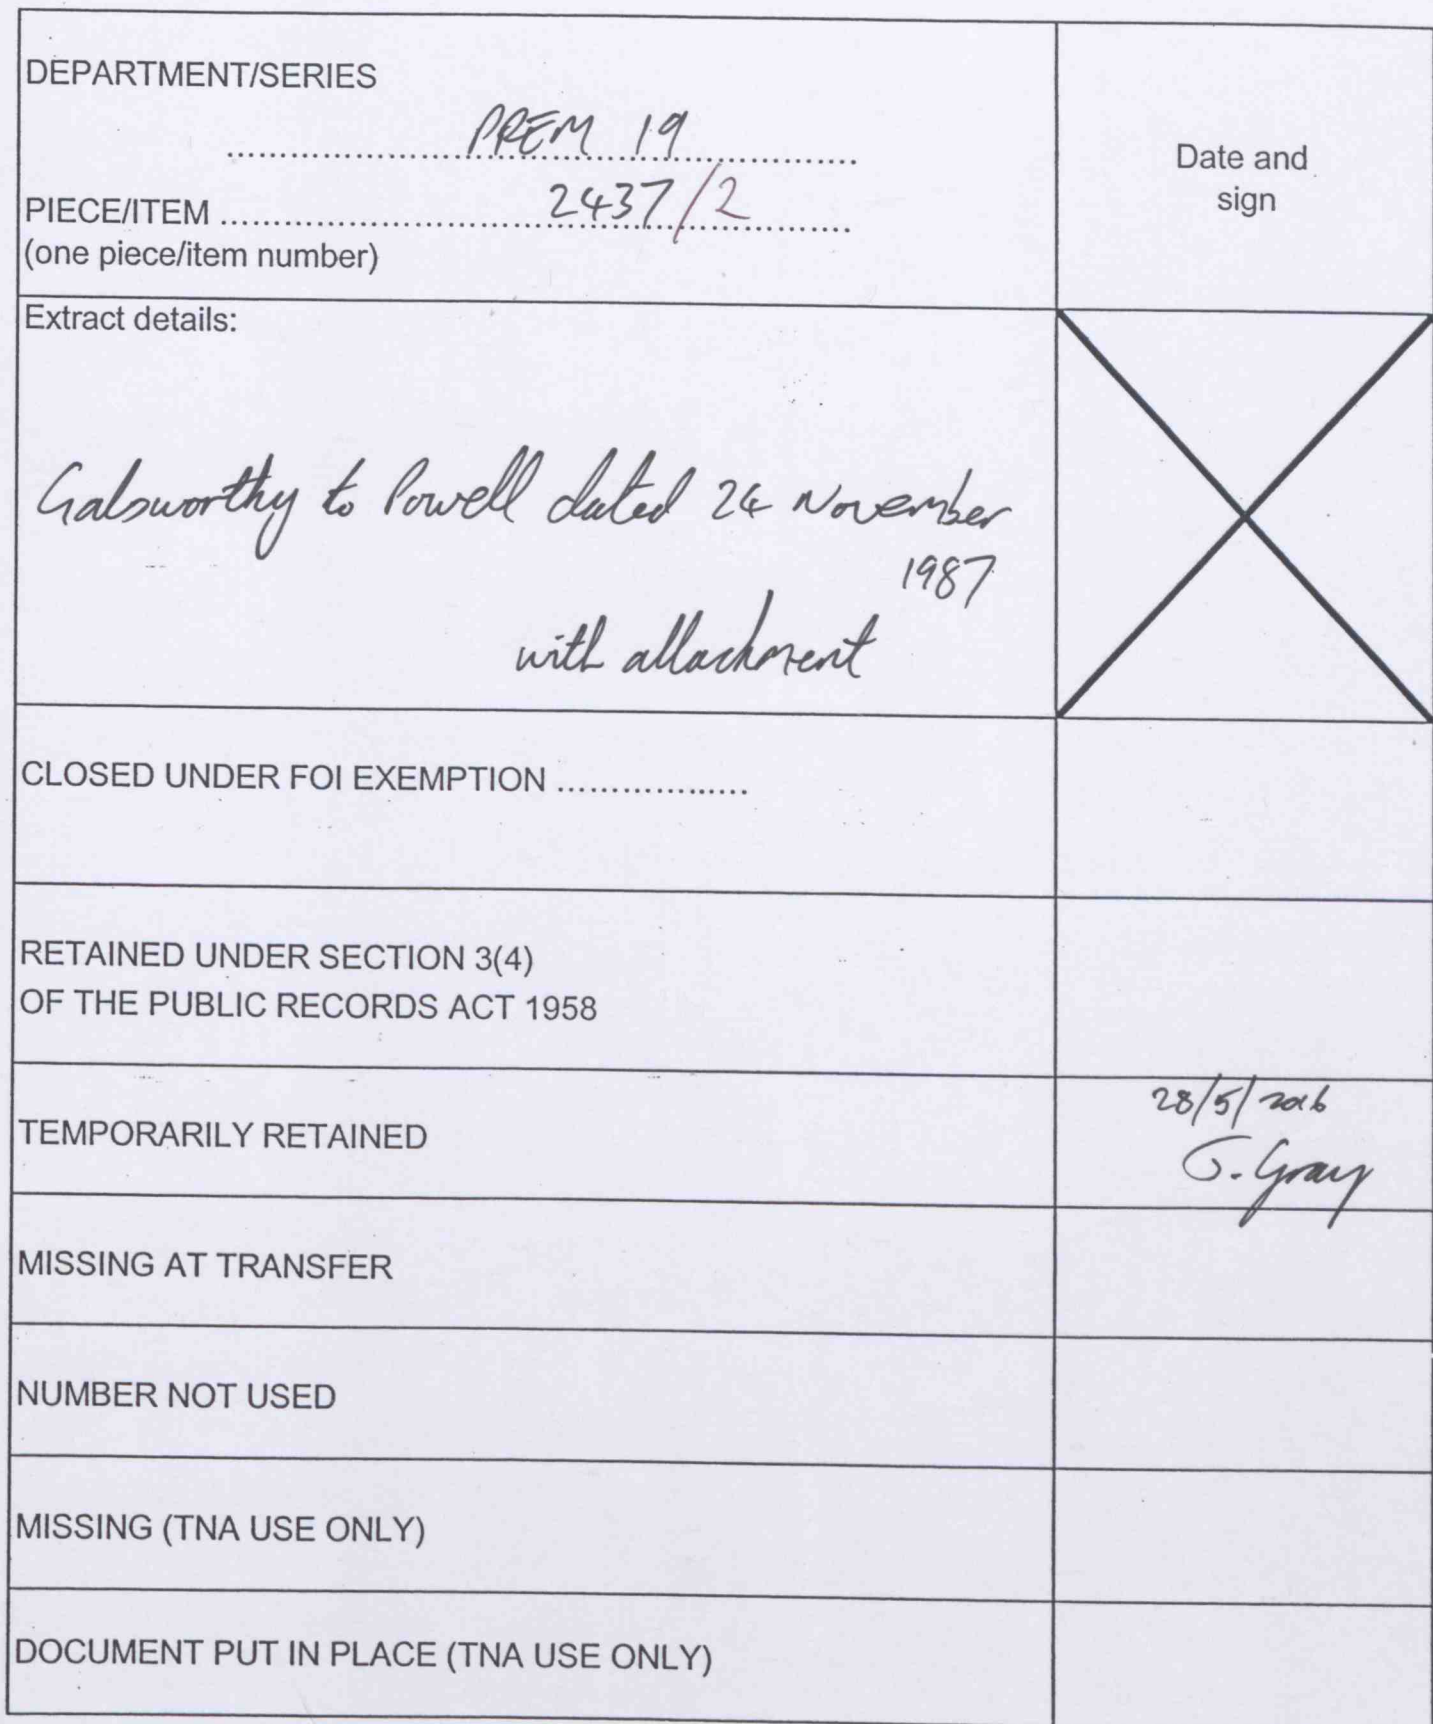 DEPARTMENT/SERIES
PREM 19
Date and
sign
PIECE/ITEM ........................ 2437/2
(one piece/item number)
Extract details:
Galsworthy to Powell dated 24 November
1987
with attachment
CLOSED UNDER FOI EXEMPTION ...................
RETAINED UNDER SECTION 3(4)
OF THE PUBLIC RECORDS ACT 1958
TEMPORARILY RETAINED
28/5/2016
J. Gray
MISSING AT TRANSFER
NUMBER NOT USED
MISSING (TNA USE ONLY)
DOCUMENT PUT IN PLACE (TNA USE ONLY)